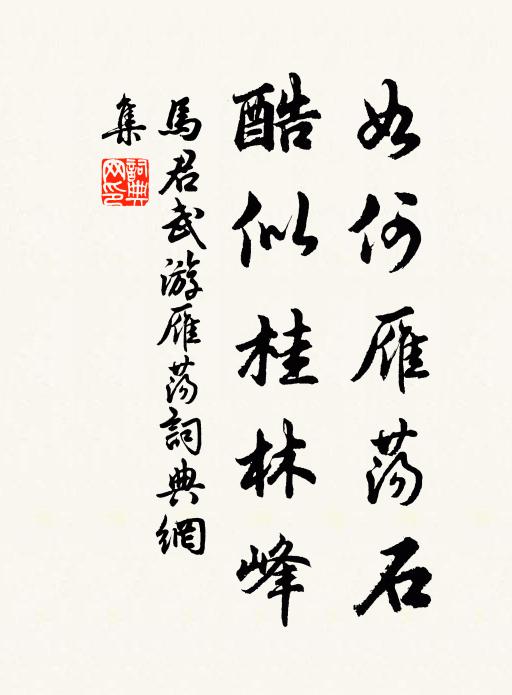 如何雁荡石
酷似桂林峰
馬君武游雁荡詞典網
集
詞典
网印